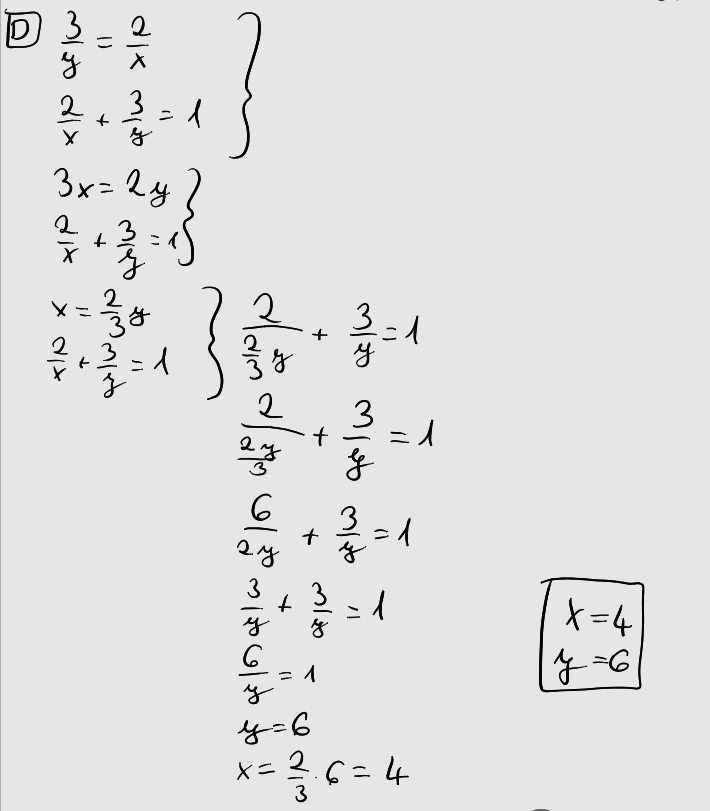 D 3/y = 2/x
2/x + 3/y = 1
3x = 2y
2/x + 3/y = 1
x = 2/3 y
2/x + 3/y = 1
2/(2/3 y) + 3/y = 1
2/(2y/3) + 3/y = 1
6/2y + 3/y = 1
3/y + 3/y = 1
6/y = 1
y = 6
x = 2/3 · 6 = 4
x = 4
y = 6